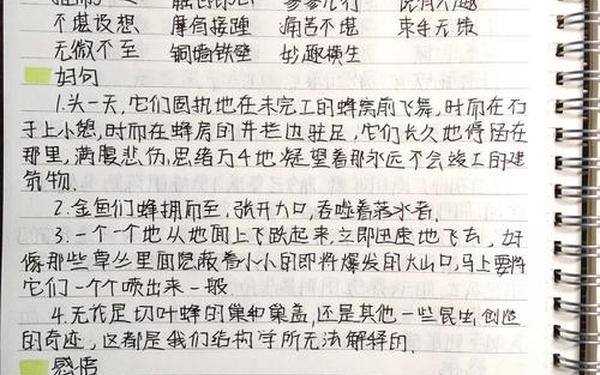 不堪设想 摩肩接踵 痛苦不堪 束手无策
无微不至 铜墙铁壁 妙趣横生
好句
1.头一天,它们固执地在未完工的蜂窝前飞舞,时而在石
子上小憩,时而在蜂房的井栏边驻足,它们长久地停留在
那里,满腹悲伤,思绪万千地凝望着那永远不会竣工的建
筑物.
2.金鱼们蜂拥而至,张开大口,吞噬着落水者.
3.一个一个地从地面上飞跃起来,立即迅速地飞去,好
像那些草丛里面隐蔽着小小的即将爆发的火山口,马上要将
它们一个个喷出来一般
4.无论是切叶蜂的巢和巢盖,还是其他一些昆虫创造
的奇迹,这都是我们结构学所无法解释的.
感悟